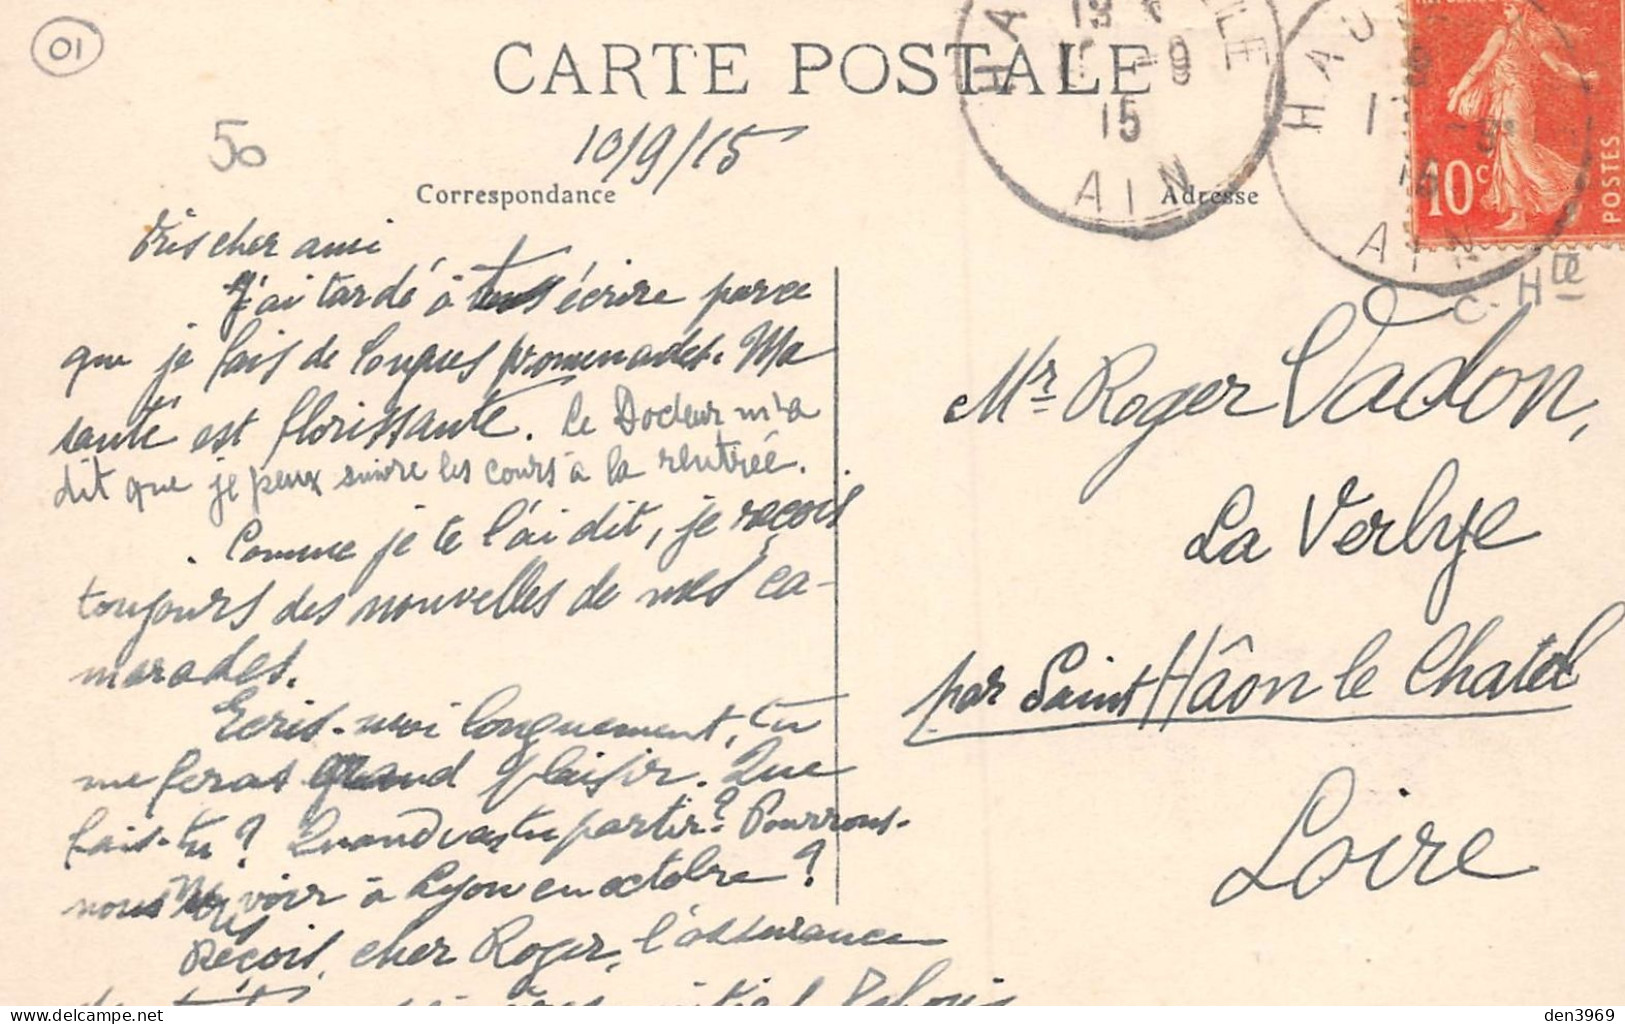 01
CARTE POSTALE
50
10/9/15
Correspondance
Adresse
15
AIN
AIN
10c
POSTES
C. Hte
Très cher ami
J'ai tardé à t'écrire parce
que je fais de longues promenades. Ma
santé est florissante. Le Docteur m'a
dit que je peux suivre les cours à la rentrée.
Comme je te l'ai dit, je reçois
toujours des nouvelles de mes ca-
marades.
Ecris-moi longuement, tu
me feras grand plaisir. Que
fais-tu? Quand vas tu partir? Pourrons-
nous nous voir à Lyon en octobre?
Reçois, cher Roger, l'assurance
Mr Roger Vadon,
La Verlye
par Saint Hâon le Chatel
Loire
den3969